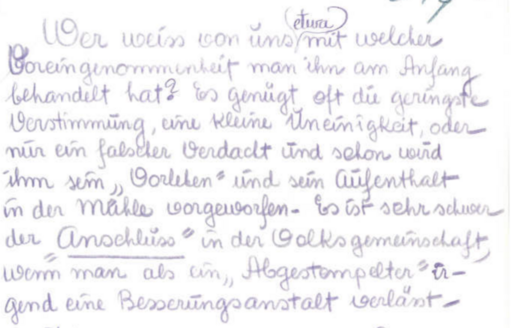 Wer weiss von uns (etwa) mit welcher
Voreingenommenheit man ihn am Anfang
behandelt hat? Es genügt oft die geringste
Verstimmung, eine kleine Uneinigkeit, oder
nur ein falscher Verdacht und schon wird
ihm sein „Vorleben" und sein Aufenthalt
in der Mühle vorgeworfen - Es ist sehr schwer
der „Anschluss" in der Volksgemeinschaft,
wenn man als ein „Abgestempelter" ir-
gend eine Besserungsanstalt verläst -